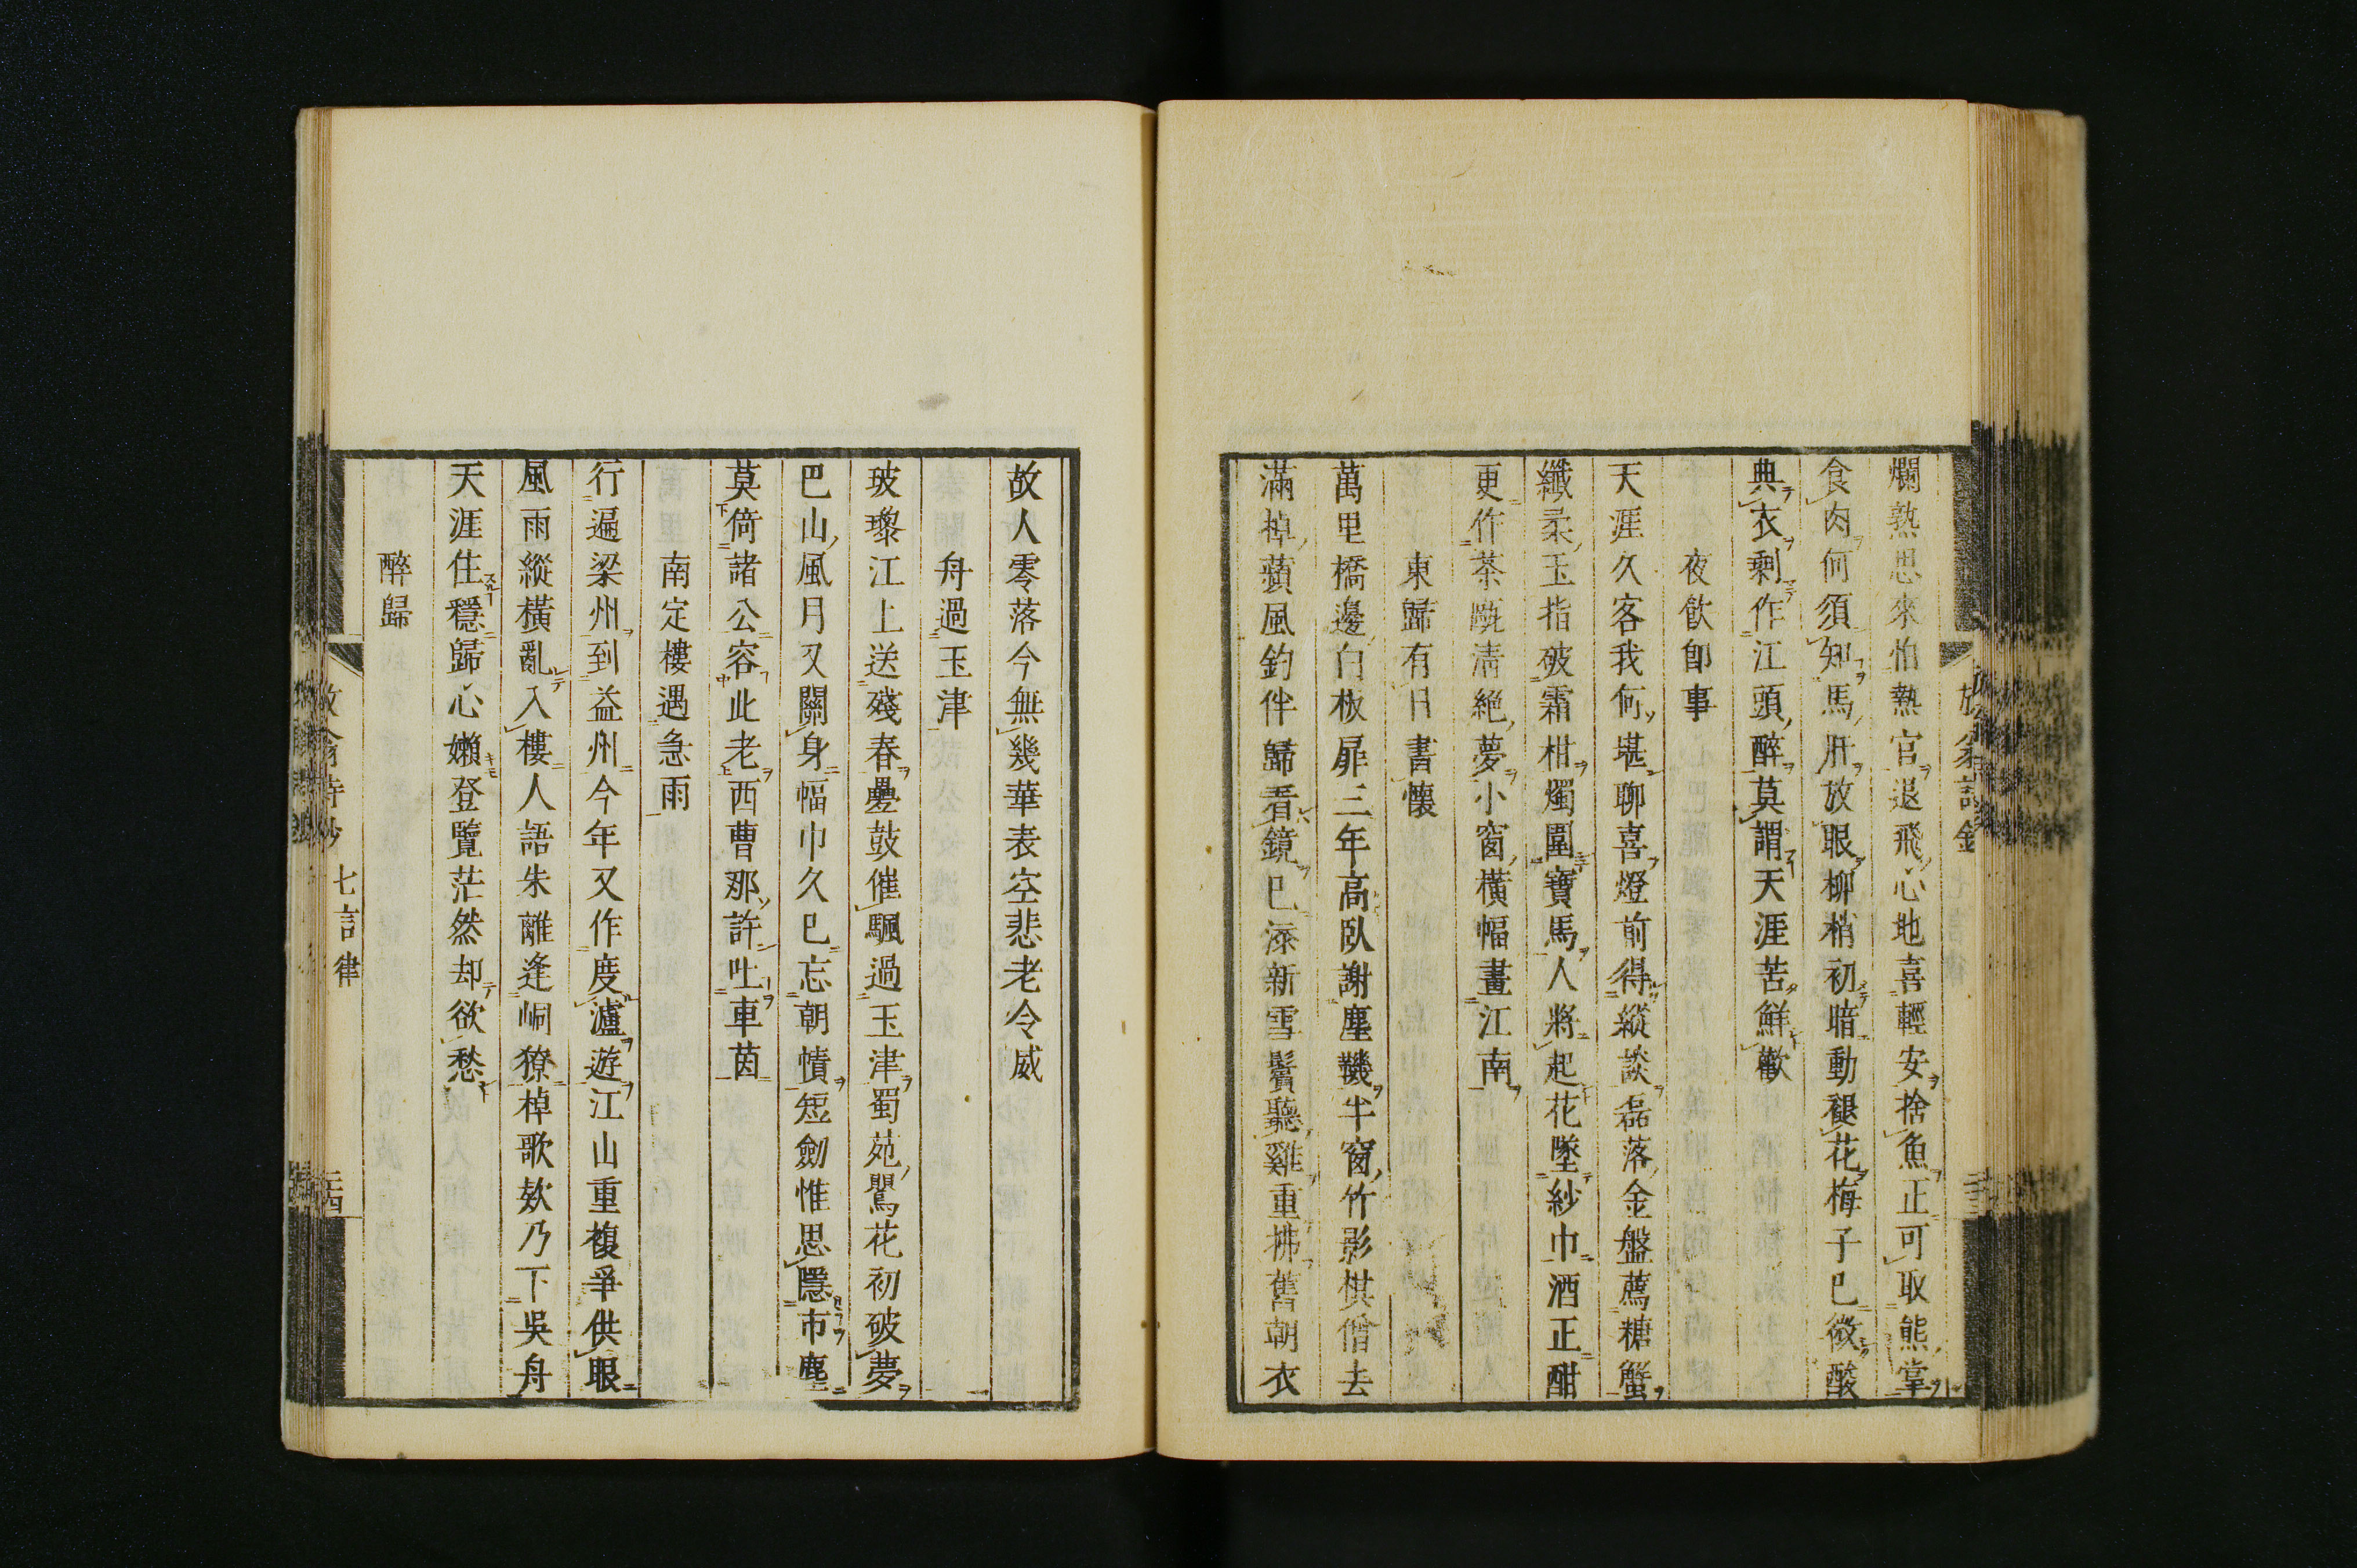 爛熟思來怕熱官退飛心地喜輕安捨魚正可取熊掌
食肉何須知馬肝放眼柳梢初暗動褪花梅子巳微酸
典衣剩作江頭醉莫謂天涯苦鮮歡
夜飲卽事
天涯久客我何堪聊喜燈前得縱談磊落金盤薦糖蟹
纖柔玉指破霜柑燭圍寶馬人將起花墜紗巾酒正酣
更作茶甌清絶夢小窗橫幅畫江南
東歸有日書懷
萬里橋邊白板扉三年高臥謝塵鞿半窗竹影棋僧去
滿棹蘋風釣伴歸看鏡巳添新雪鬢聽雞重拂舊朝衣
故人零落今無幾華表空悲老令威
舟過玉津
玻瓈江上送殘春疊鼓催颿過玉津蜀苑鸎花初破夢
巴山風月又關身幅巾久巳忘朝幘短劒惟思隱市塵
莫倚諸公容此老西曹那許吐車茵
南定樓遇急雨
行遍梁州到益州今年又作度瀘遊江山重複爭供眼
風雨縱橫亂入樓人語朱離逢峒獠棹歌欸乃下吳舟
天涯住穩歸心嬾登覽茫然却欲愁
醉歸
七言律